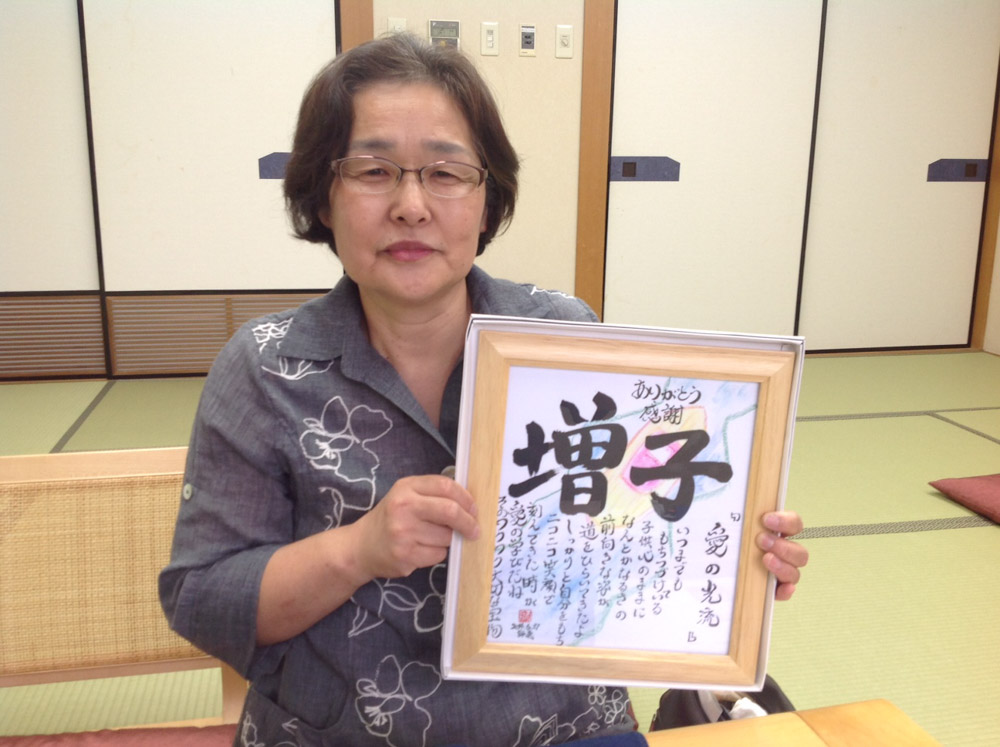 ありがとう
感謝
増子
愛の光流
いつまでも
もちつづけている
子供心のままに
なんとかなるさの
前向きな姿が
道をひらいてきたんよ
しっかりと自分をもち
ニコニコ笑顔で
刻んできた時が
愛の学びだね
大切な宝物